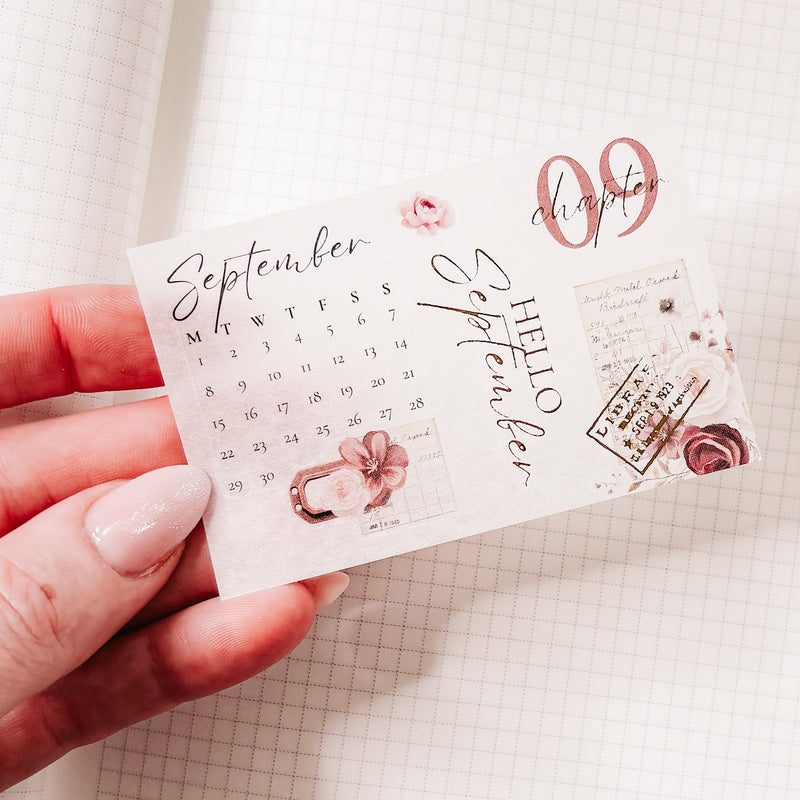 September
M T W T F S S
1 2 3 4 5 6 7
8 9 10 11 12 13 14
15 16 17 18 19 20 21
22 23 24 25 26 27 28
29 30
HELLO
September
09
chapter
LIBRARY
SEP 19 1923